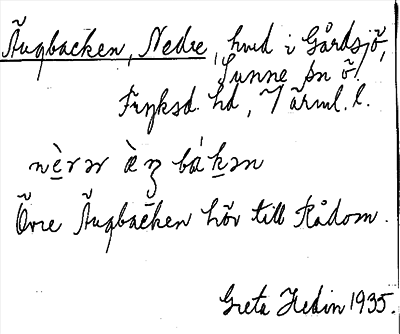 Ängbacken, Nedre, hvud i Gårdsjö,
Sunne sn ö!
Fryksd. hd, Värml. l.
nè̱rər æ̀ŋ bákən
Övre Ängbacken hör till Rådom.
Greta Hedin 1935.